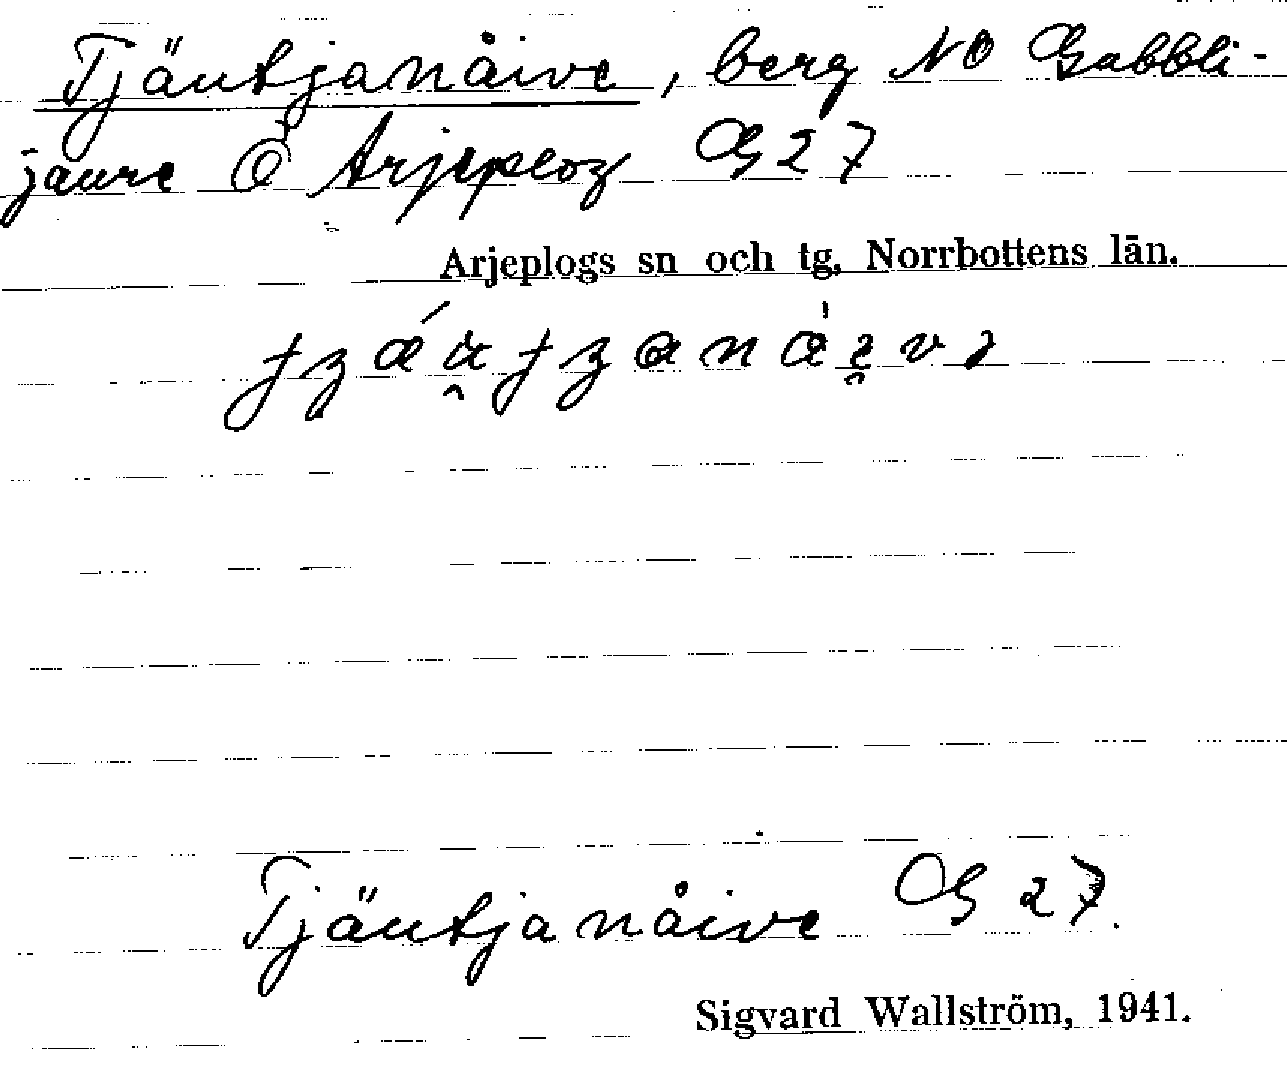 Tjäutjanåive, berg NO Gabbli-
jaure Ö Arjeplog G 27
Arjeplogs sn och tg, Norrbottens län.
Tjäutjanåive G 27.
Sigvard Wallström, 1941.